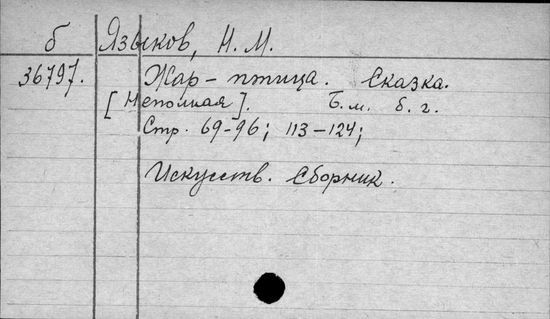 б Языков, Н. М.
36797. Жар-птица. Сказка.
[Неполная]. Б. м. б. г.
Стр. 69-96; 113-124;
Искусств. Сборник.